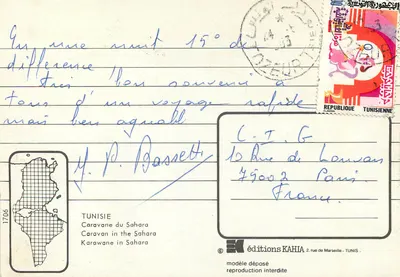 En une nuit 15° de
différence !
très bon souvenir à
tous d'un voyage rapide
mais bien agréabl
TOZEUR
24
REPUBLIQUE TUNISIENNE
C. I. G
10 Rue de Louvois
75002 Paris.
France.
1706
TUNISIE
Caravane du Sahara
Caravan in the Sahara
Karawane in Sahara
© éditions KAHIA 2, rue de Marseille - TUNIS
modèle déposé
reproduction interdite